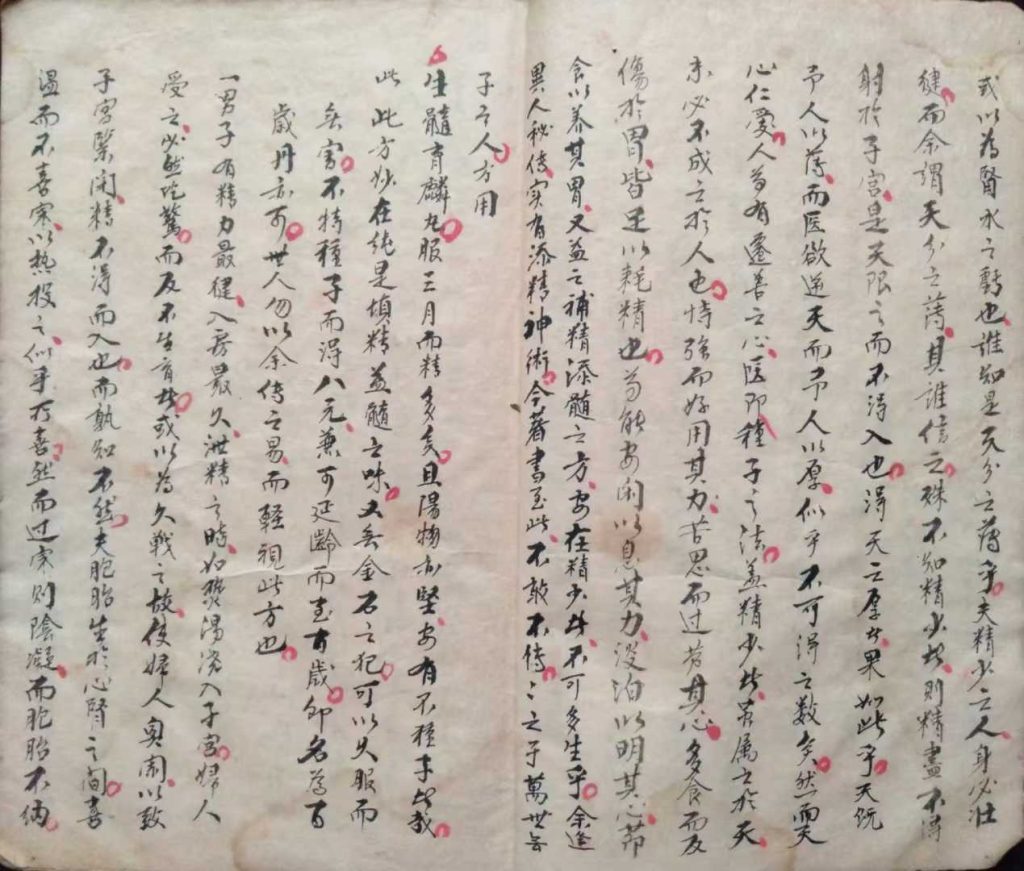 或以為腎水之虧也誰知是天分之薄乎夫精少之人身必壮
健而余謂天分之薄其誰信之殊不知精少者則精盡不得
射於子宮是天限之而不得入也得天之厚者果如此乎天既
予人以薄而医欲逆天而予人以厚似乎不可得之数矣然而天
心仁愛人苟有遷善之心医即種子之法盖精少者雖属之於天
未必不成之於人也恃強而好用其力苦思而过劳其心多食而反
傷於胃皆足以耗精也苟能安闲以息其力淡泊以明其心節
食以养其胃又益之補精添髓之方安在精少者不可多生乎余逢
異人秘傳实有添精神術今著書至此不敢不傳〻之于萬世無
子之人方用
生髓育麟丸服三月而精多矣且陽物亦堅安有不種子者哉
此此方妙在純是填精益髓之味又無金石之犯可以久服而
無害不特種子而得八元兼可延齡而至百歲即名為百
歲丹亦可世人勿以余傳之易而輕視此方也
一男子有精力最健入房最久泄精之時如熱湯澆入子宮婦人
受之必然吃驚而反不生育者或以為久戰之故使婦人奥闹以致
子宮緊闭精不得而入也而孰知不然夫胞胎生於心腎之间喜
温而不喜寒以熱投之似乎可喜然而过寒則陰凝而胞胎不納